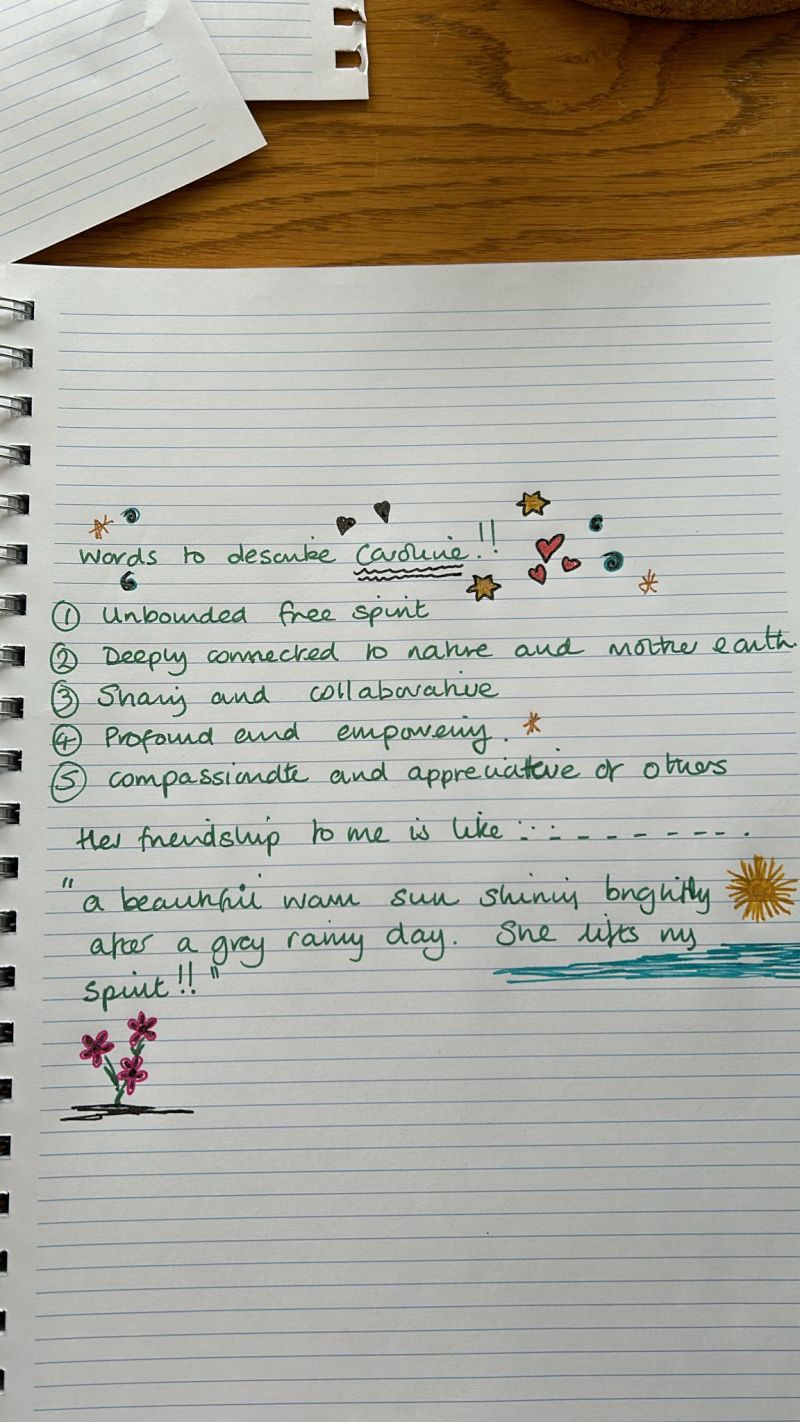 words to describe Caroline!!
① Unbounded free spirit
② Deeply connected to nature and mother earth.
③ Sharing and collaborative
④ Profound and empowering.
⑤ compassionate and appreciative of others
Her friendship to me is like : : - - - - - - - .
"a beautiful warm sun shining brightly
after a grey rainy day. She lifts my
spirit!!"